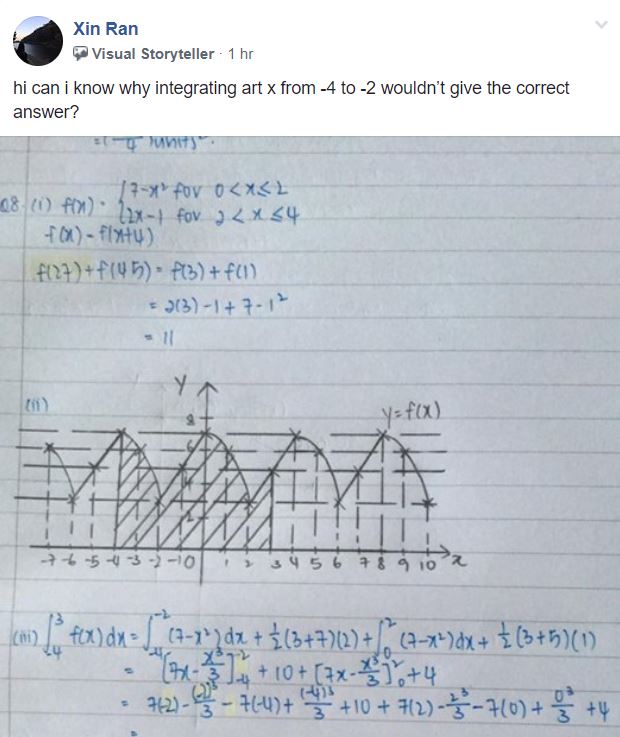 Xin Ran
Visual Storyteller · 1 hr
hi can i know why integrating art x from -4 to -2 wouldn't give the correct
answer?
units².
Q8. (i) f(x) = { 7-x² for 0<x≤2
2x-1 for 2<x≤4
f(x) = f(x+4)
f(27)+f(45) = f(3)+f(1)
= 2(3)-1+7-1²
= 11
(ii)
y
y=f(x)
8
6
2
-7 -6 -5 -4 -3 -2 -1 0 1 2 3 4 5 6 7 8 9 10 x
(iii) ∫₋₄³ f(x) dx = ∫₋₄⁻² (7-x²) dx + ½(3+7)(2) + ∫₀² (7-x²) dx + ½(3+5)(1)
= [7x - x³/3]₋₄⁻² + 10 + [7x - x³/3]₀² + 4
= 7(-2) - (-2)³/3 - 7(-4) + (-4)³/3 + 10 + 7(2) - 2³/3 - 7(0) + 0³/3 + 4
=